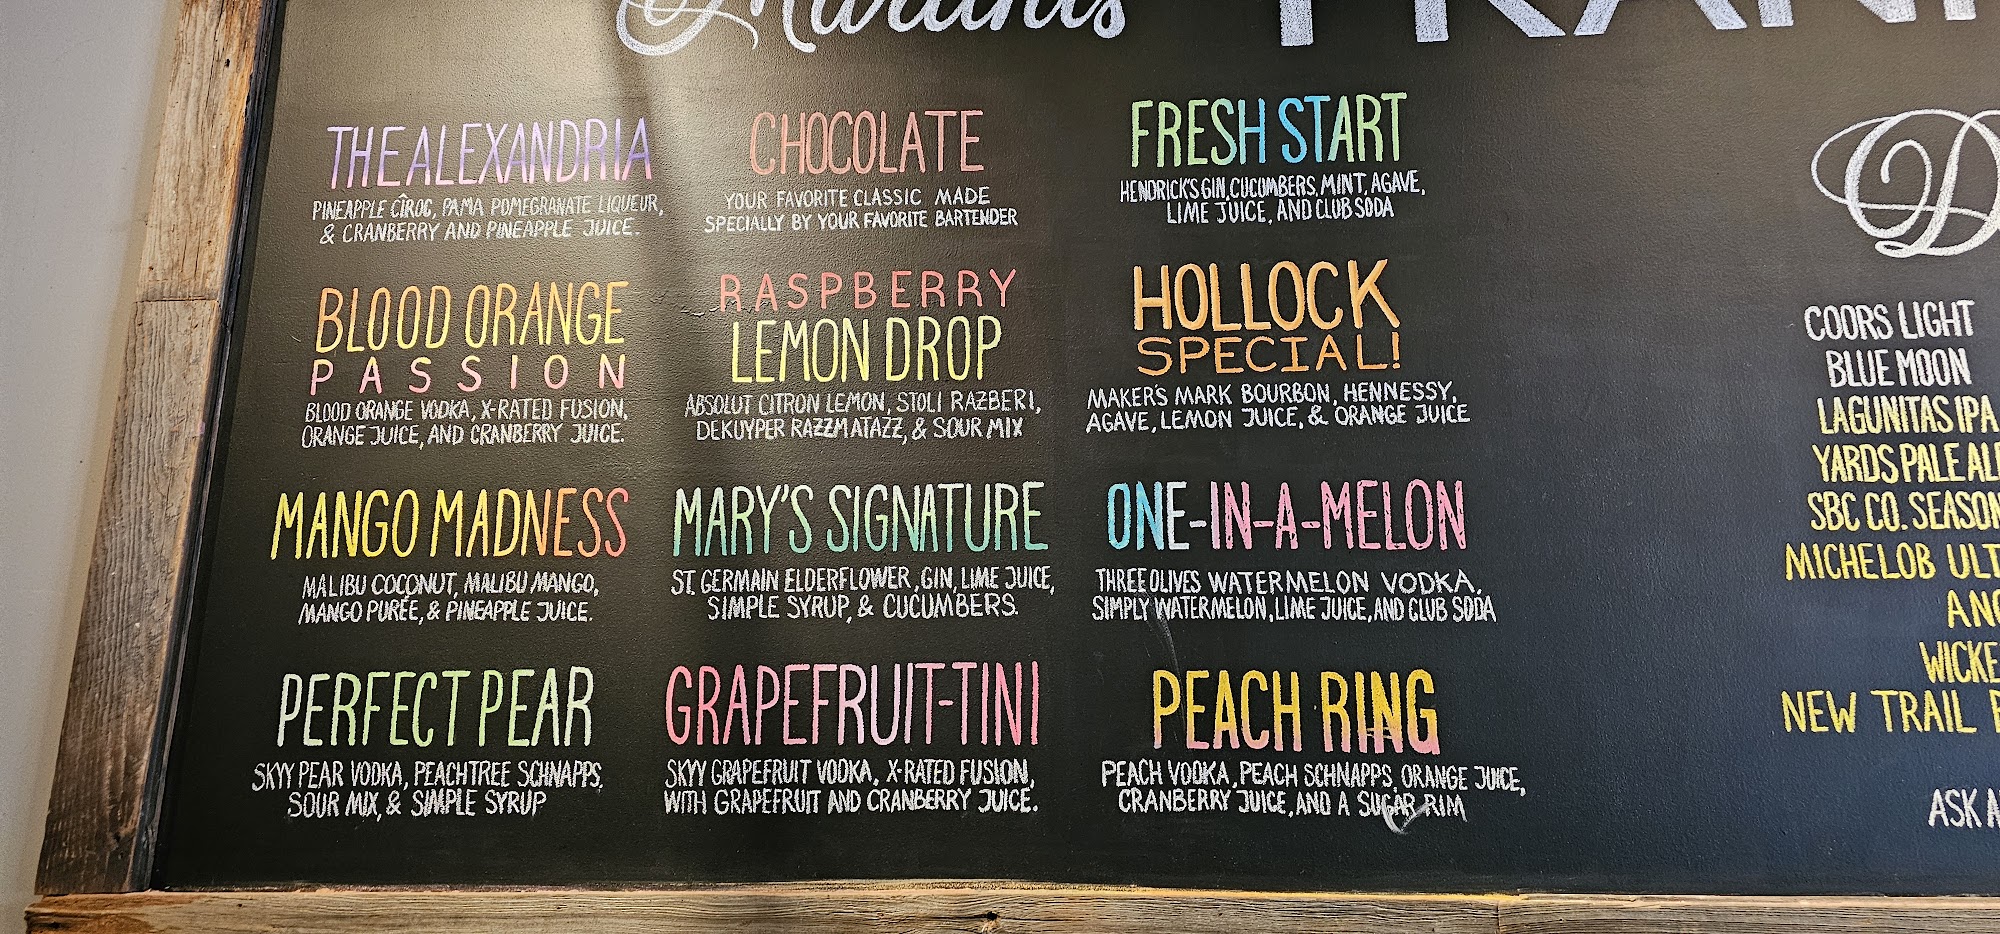 Martinis
THE ALEXANDRIA
PINEAPPLE CÎROC, PAMA POMEGRANATE LIQUEUR,
& CRANBERRY AND PINEAPPLE JUICE.
BLOOD ORANGE
PASSION
BLOOD ORANGE VODKA, X-RATED FUSION,
ORANGE JUICE, AND CRANBERRY JUICE.
MANGO MADNESS
MALIBU COCONUT, MALIBU MANGO,
MANGO PURÉE, & PINEAPPLE JUICE.
PERFECT PEAR
SKYY PEAR VODKA, PEACHTREE SCHNAPPS,
SOUR MIX, & SIMPLE SYRUP
CHOCOLATE
YOUR FAVORITE CLASSIC MADE
SPECIALLY BY YOUR FAVORITE BARTENDER
RASPBERRY
LEMON DROP
ABSOLUT CITRON LEMON, STOLI RAZBERI,
DEKUYPER RAZZMATAZZ, & SOUR MIX
MARY'S SIGNATURE
ST. GERMAIN ELDERFLOWER, GIN, LIME JUICE,
SIMPLE SYRUP, & CUCUMBERS.
GRAPEFRUIT-TINI
SKYY GRAPEFRUIT VODKA, X-RATED FUSION,
WITH GRAPEFRUIT AND CRANBERRY JUICE.
FRESH START
HENDRICK'S GIN, CUCUMBERS, MINT, AGAVE,
LIME JUICE, AND CLUB SODA
HOLLOCK
SPECIAL!
MAKER'S MARK BOURBON, HENNESSY,
AGAVE, LEMON JUICE, & ORANGE JUICE
ONE-IN-A-MELON
THREE OLIVES WATERMELON VODKA,
SIMPLY WATERMELON, LIME JUICE, AND CLUB SODA
PEACH RING
PEACH VODKA, PEACH SCHNAPPS, ORANGE JUICE,
CRANBERRY JUICE, AND A SUGAR RIM
D
COORS LIGHT
BLUE MOON
LAGUNITAS IPA
YARDS PALE ALE
SBC CO. SEASON
MICHELOB ULT
WICKE
NEW TRAIL
ASK